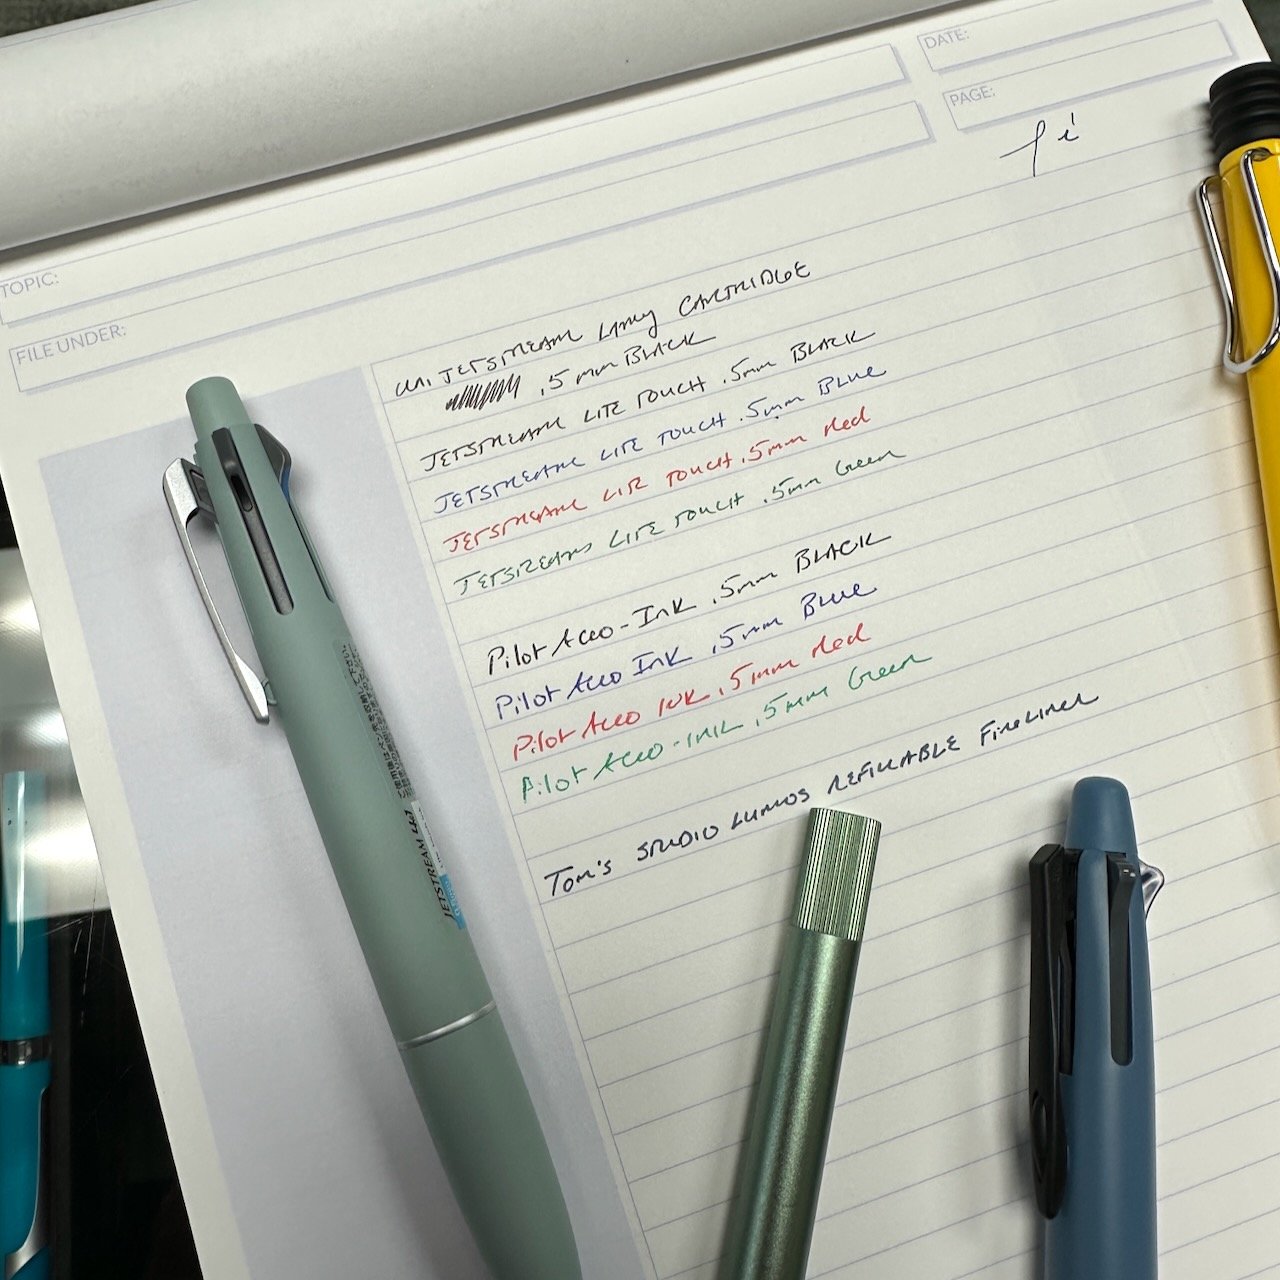 DATE:
PAGE:
TOPIC:
FILE UNDER:
UNI JETSTREAM LAMY CARTRIDGE
.5mm BLACK
JETSTREAM LITE TOUCH .5mm BLACK
JETSTREAM LITE TOUCH .5mm Blue
JETSTREAM LITE TOUCH .5mm Red
JETSTREAM LITE TOUCH .5mm Green
Pilot Acro-Ink .5mm BLACK
Pilot Acro Ink .5mm Blue
Pilot Acro INK .5mm Red
Pilot Acro-INK .5mm Green
Tom's STUDIO LUMOS REFILLABLE FineLiner
JETSTREAM 4&1